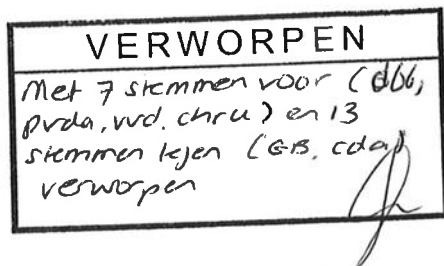 VERWORPEN
Met 7 stemmen voor (d66,
pvda, vvd, chru) en 13
stemmen tegen (GB, cda)
verworpen